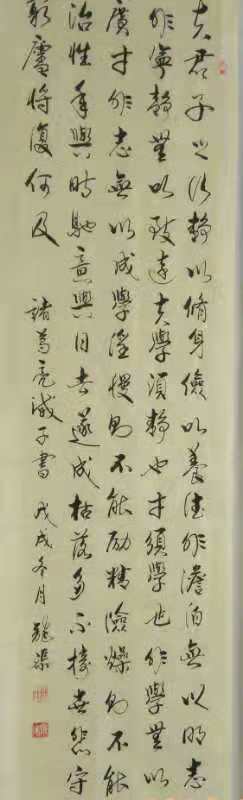 夫君子之行靜以脩身儉以養德非澹泊無以明志
非寧靜無以致遠夫學須靜也才須學也非學無以
廣才非志無以成學淫慢則不能勵精險躁則不能
治性年與時馳意與日去遂成枯落多不接世悲守
窮廬將復何及 諸葛亮誡子書 戊戌冬月